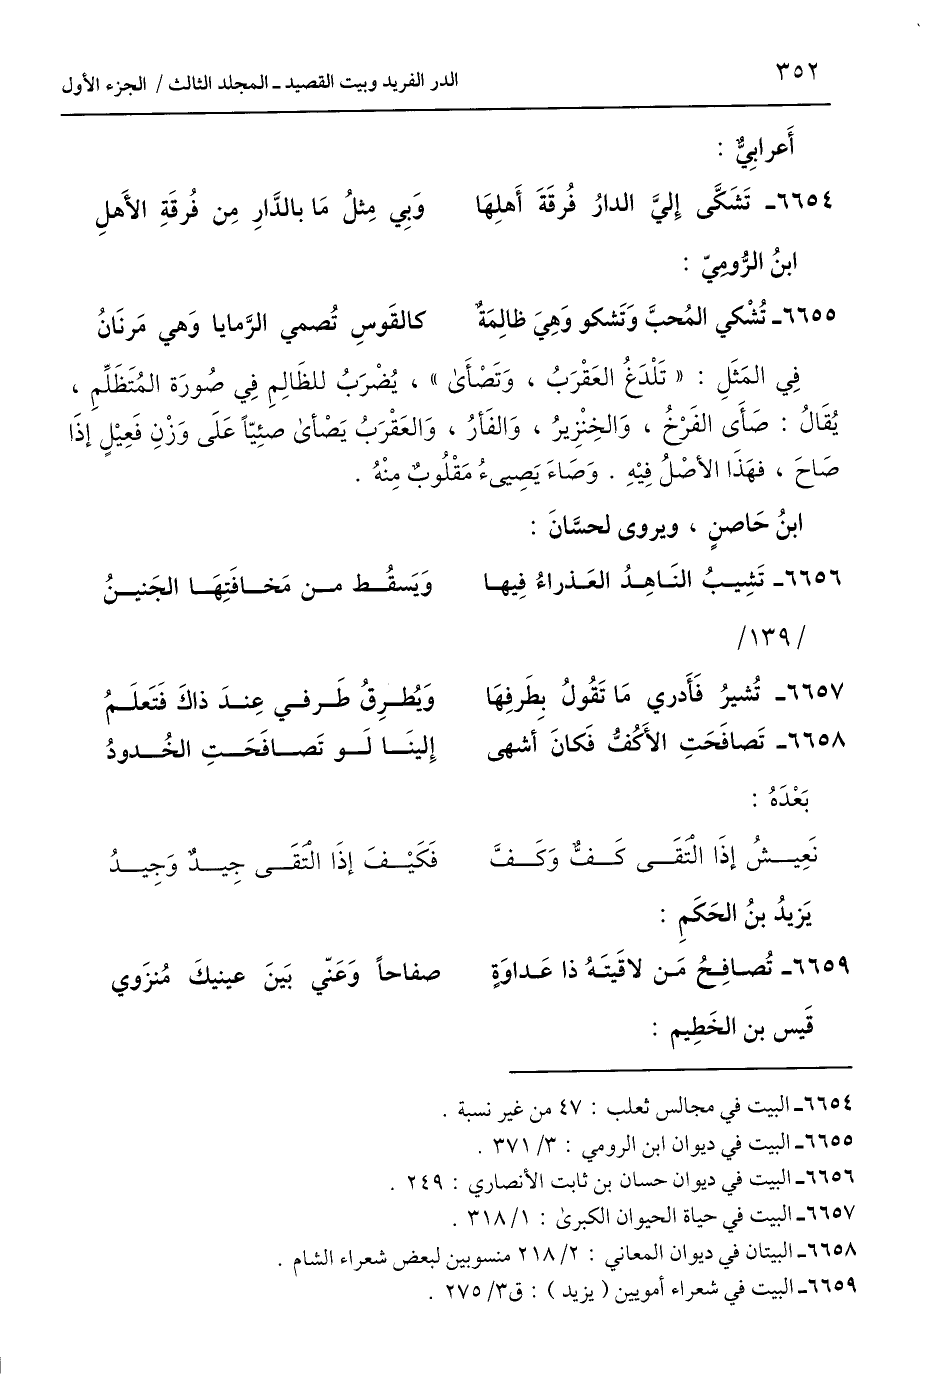 ٣٥٢
الدر الفريد وبيت القصيد ـ المجلد الثالث / الجزء الأول
أَعرابِيٌّ :
٦٦٥٤ـ تَشَكَّى إِليَّ الدارُ فُرقَةَ أَهلِهَا وَبِي مِثلُ مَا بالدَّارِ مِن فُرقَةِ الأَهلِ
ابنُ الرُّومِيّ :
٦٦٥٥ـ تُشْكي المُحبَّ وَتَشكو وَهِيَ ظالِمَةٌ كالقَوسِ تُصمي الرَّمايا وَهي مَرنَانُ
فِي المَثَلِ : « تَلْدَغُ العَقْرَبُ ، وَتَصْأَىٰ » ، يُضْرَبُ للظَالِمِ فِي صُورَة المُتَظَلِّمِ ،
يُقَالُ : صَأَى الفَرْخُ ، وَالخِنْزِيرُ ، وَالفَأرُ ، وَالعَقْرَبُ يَصْأىٰ صئِيّاً عَلَى وَزْنِ فَعِيْلٍ إذَا
صَاحَ ، فهَذَا الأصْلُ فِيْهِ . وَصَاءَ يَصِيىءُ مَقْلُوبٌ مِنْهُ .
ابنُ حَاصنٍ ، ويروى لحسَّانَ :
٦٦٥٦ـ تَشِيبُ النَاهِدُ العَذراءُ فِيها وَيَسقُط من مَخافَتِهَا الجَنينُ
/١٣٩/
٦٦٥٧ـ تُشيرُ فَأَدري مَا تَقُولُ بِطَرفِهَا وَيُطرِقُ طَرفي عِندَ ذاكَ فَتَعلَمُ
٦٦٥٨ـ تَصافَحَتِ الأَكُفُّ فَكانَ أشهى إلينَا لَو تَصافَحَتِ الخُدودُ
بَعْدَهُ :
نَعِيشُ إذَا الْتَقَى كَفٌّ وَكَفٌّ فَكَيْفَ إذَا الْتَقَى جِيدٌ وَجِيدُ
يَزيدُ بنُ الحَكَمِ :
٦٦٥٩ـ تُصافِحُ مَن لاقَيتَهُ ذا عَداوَةٍ صفاحاً وَعَنّي بَينَ عينيكَ مُنزَوي
قَيس بن الخَطِيم :
٦٦٥٤ـ البيت في مجالس ثعلب : ٤٧ من غير نسبة .
٦٦٥٥ـ البيت في ديوان ابن الرومي : ٣/ ٣٧١ .
٦٦٥٦ـ البيت في ديوان حسان بن ثابت الأنصاري : ٢٤٩ .
٦٦٥٧ـ البيت في حياة الحيوان الكبرىٰ : ١/ ٣١٨ .
٦٦٥٨ـ البيتان في ديوان المعاني : ٢/ ٢١٨ منسوبين لبعض شعراء الشام .
٦٦٥٩ـ البيت في شعراء أمويين ( يزيد ) : ق٣/ ٢٧٥ .